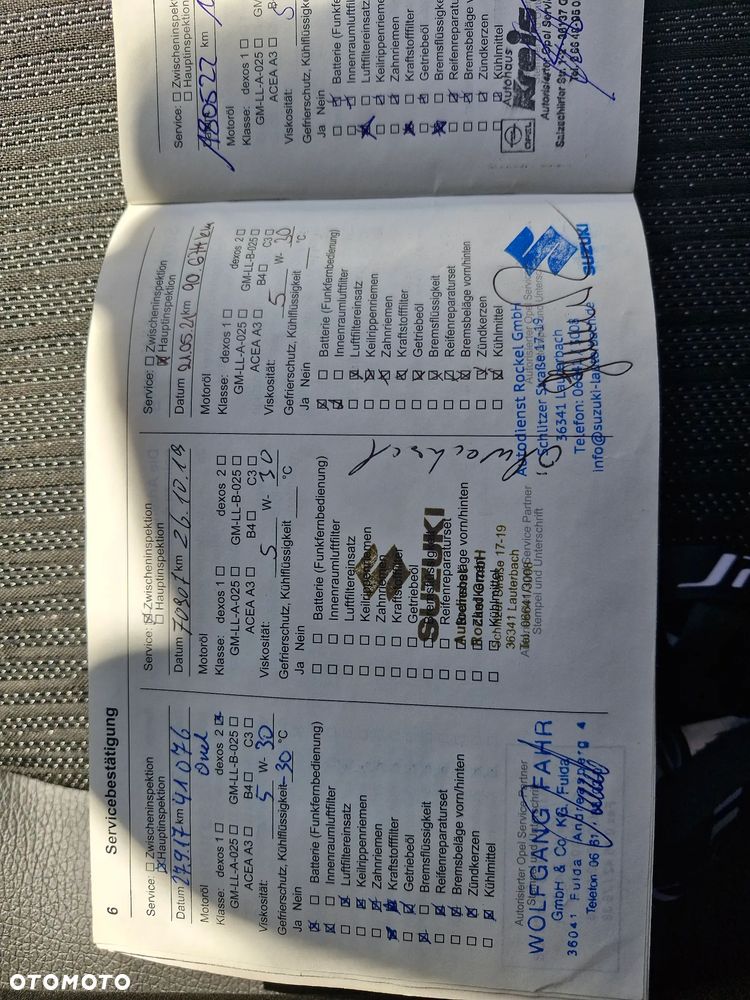 6
Servicebestätigung
Service: Zwischeninspektion
Hauptinspektion
Datum 27.9.17 km 41 076
Motoröl Opel
Klasse: dexos 1 dexos 2
GM-LL-A-025 GM-LL-B-025
ACEA A3 B4 C3
Viskosität: 5 W- 30
Gefrierschutz, Kühlflüssigkeit -30 °C
Ja Nein
Batterie (Funkfernbedienung)
Innenraumluftfilter
Luftfiltereinsatz
Keilrippenriemen
Zahnriemen
Kraftstofffilter
Getriebeöl
Bremsflüssigkeit
Reifenreparaturset
Bremsbeläge vorn/hinten
Zündkerzen
Kühlmittel
Autorisierter Opel Service Partner
WOLFGANG FAHR
GmbH & Co. KG, Fulda
36041 Fulda
Telefon 06 61
Service: Zwischeninspektion
Hauptinspektion
Datum 70907 km 26.10.19
Motoröl
Klasse: dexos 1 dexos 2
GM-LL-A-025 GM-LL-B-025
ACEA A3 B4 C3
Viskosität: 5 W- 30
Gefrierschutz, Kühlflüssigkeit °C
Ja Nein
Batterie (Funkfernbedienung)
Innenraumluftfilter
Luftfiltereinsatz
Keilrippenriemen
Zahnriemen
Kraftstofffilter
Getriebeöl
Bremsflüssigkeit
Reifenreparaturset
Bremsbeläge vorn/hinten
Zündkerzen
Kühlmittel
SUZUKI
Autodienst
Rockel GmbH
Schlitzer Straße 17-19
36341 Lauterbach
Tel. 06641/3008
Service Partner
Stempel und Unterschrift
Ölwechsel
Service: Zwischeninspektion
Hauptinspektion
Datum 21.05.21 km 90.674 km
Motoröl
Klasse: dexos 1 dexos 2
GM-LL-A-025 GM-LL-B-025
ACEA A3 B4 C3
Viskosität: 5 W- 30
Gefrierschutz, Kühlflüssigkeit °C
Ja Nein
Batterie (Funkfernbedienung)
Innenraumluftfilter
Luftfiltereinsatz
Keilrippenriemen
Zahnriemen
Kraftstofffilter
Getriebeöl
Bremsflüssigkeit
Reifenreparaturset
Bremsbeläge vorn/hinten
Zündkerzen
Kühlmittel
SUZUKI
Autodienst Rockel GmbH
Schlitzer Straße 17-19
36341 Lauterbach
Telefon:
Service: Zwischeninspektion
Hauptinspektion
km
Motoröl
Klasse: dexos 1
GM-LL-A-025
ACEA A3
Viskosität: 5
Gefrierschutz, Kühlflüssig
Ja Nein
Batterie (Funkfer
Innenraumluftfilter
Luftfiltereinsatz
Keilrippenriemen
Zahnriemen
Kraftstofffilter
Getriebeöl
Bremsflüssigk
Reifenreparatur
Bremsbeläge v
Zündkerzen
Kühlmittel
OPEL
Autohaus
Kreis
Autorisierter Opel Serv
Salzschlirfer Str.
OTOMOTO